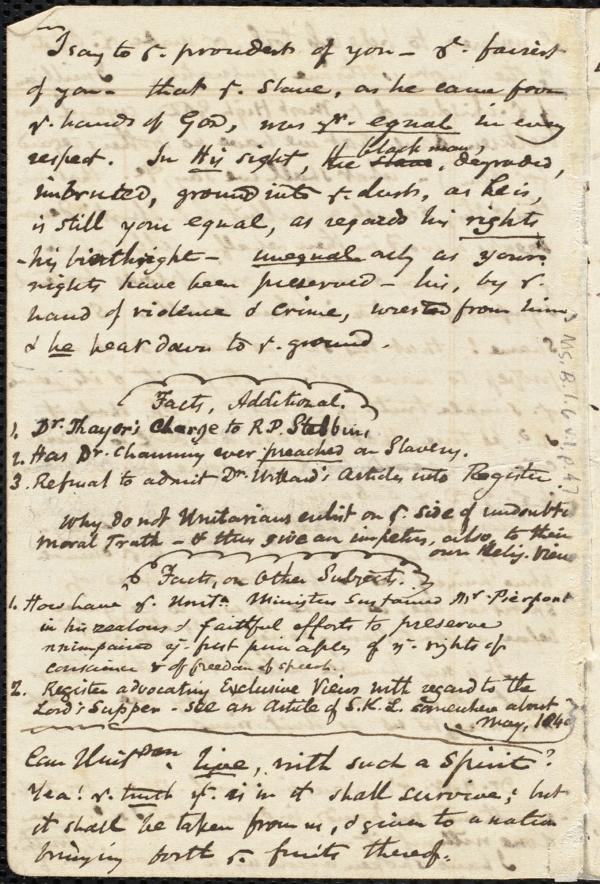 I say to ye. proudest of you – ye. fairest
of you – that ye. Slave, as he came from
ye. hands of God, was yr. equal in every
respect. In His sight, the black man, degraded,
imbruted, ground into ye. dust, as he is,
is still your equal, as regards his rights
- his birthright – unequal only as your
rights have been preserved – his, by ye.
hand of violence & crime, wrested from him,
& he beat down to ye. ground.
Facts, Additional.
1. Dr. Thayer's Charge to R.P. Stebbins
2. Has Dr. Channing ever preached on Slavery.
3. Refusal to admit Dr. Willard's Articles into Register.
Why do not Unitarians enlist on ye. side of undoubt
Moral Truth – & thus give an impetus, also, to their
own Relig. Views
Facts, on Other Subjects.
1. How have ye. Unitn. Ministers sustained Mr. Pierpont
in his zealous & faithful efforts to preserve
unimpaired ye. first principles of ye. rights of
conscience & of freedom of speech.
2. Register advocating Exclusive Views with regard to the
Lord's Supper – see an Article of S.K.L. somewhere about
May, 1840
Can Unitn. live, with such a Spirit?
Yea! ye. truth yt. is in it shall survive; but
it shall be taken from us, & given to a nation
bringing forth ye. fruits thereof.